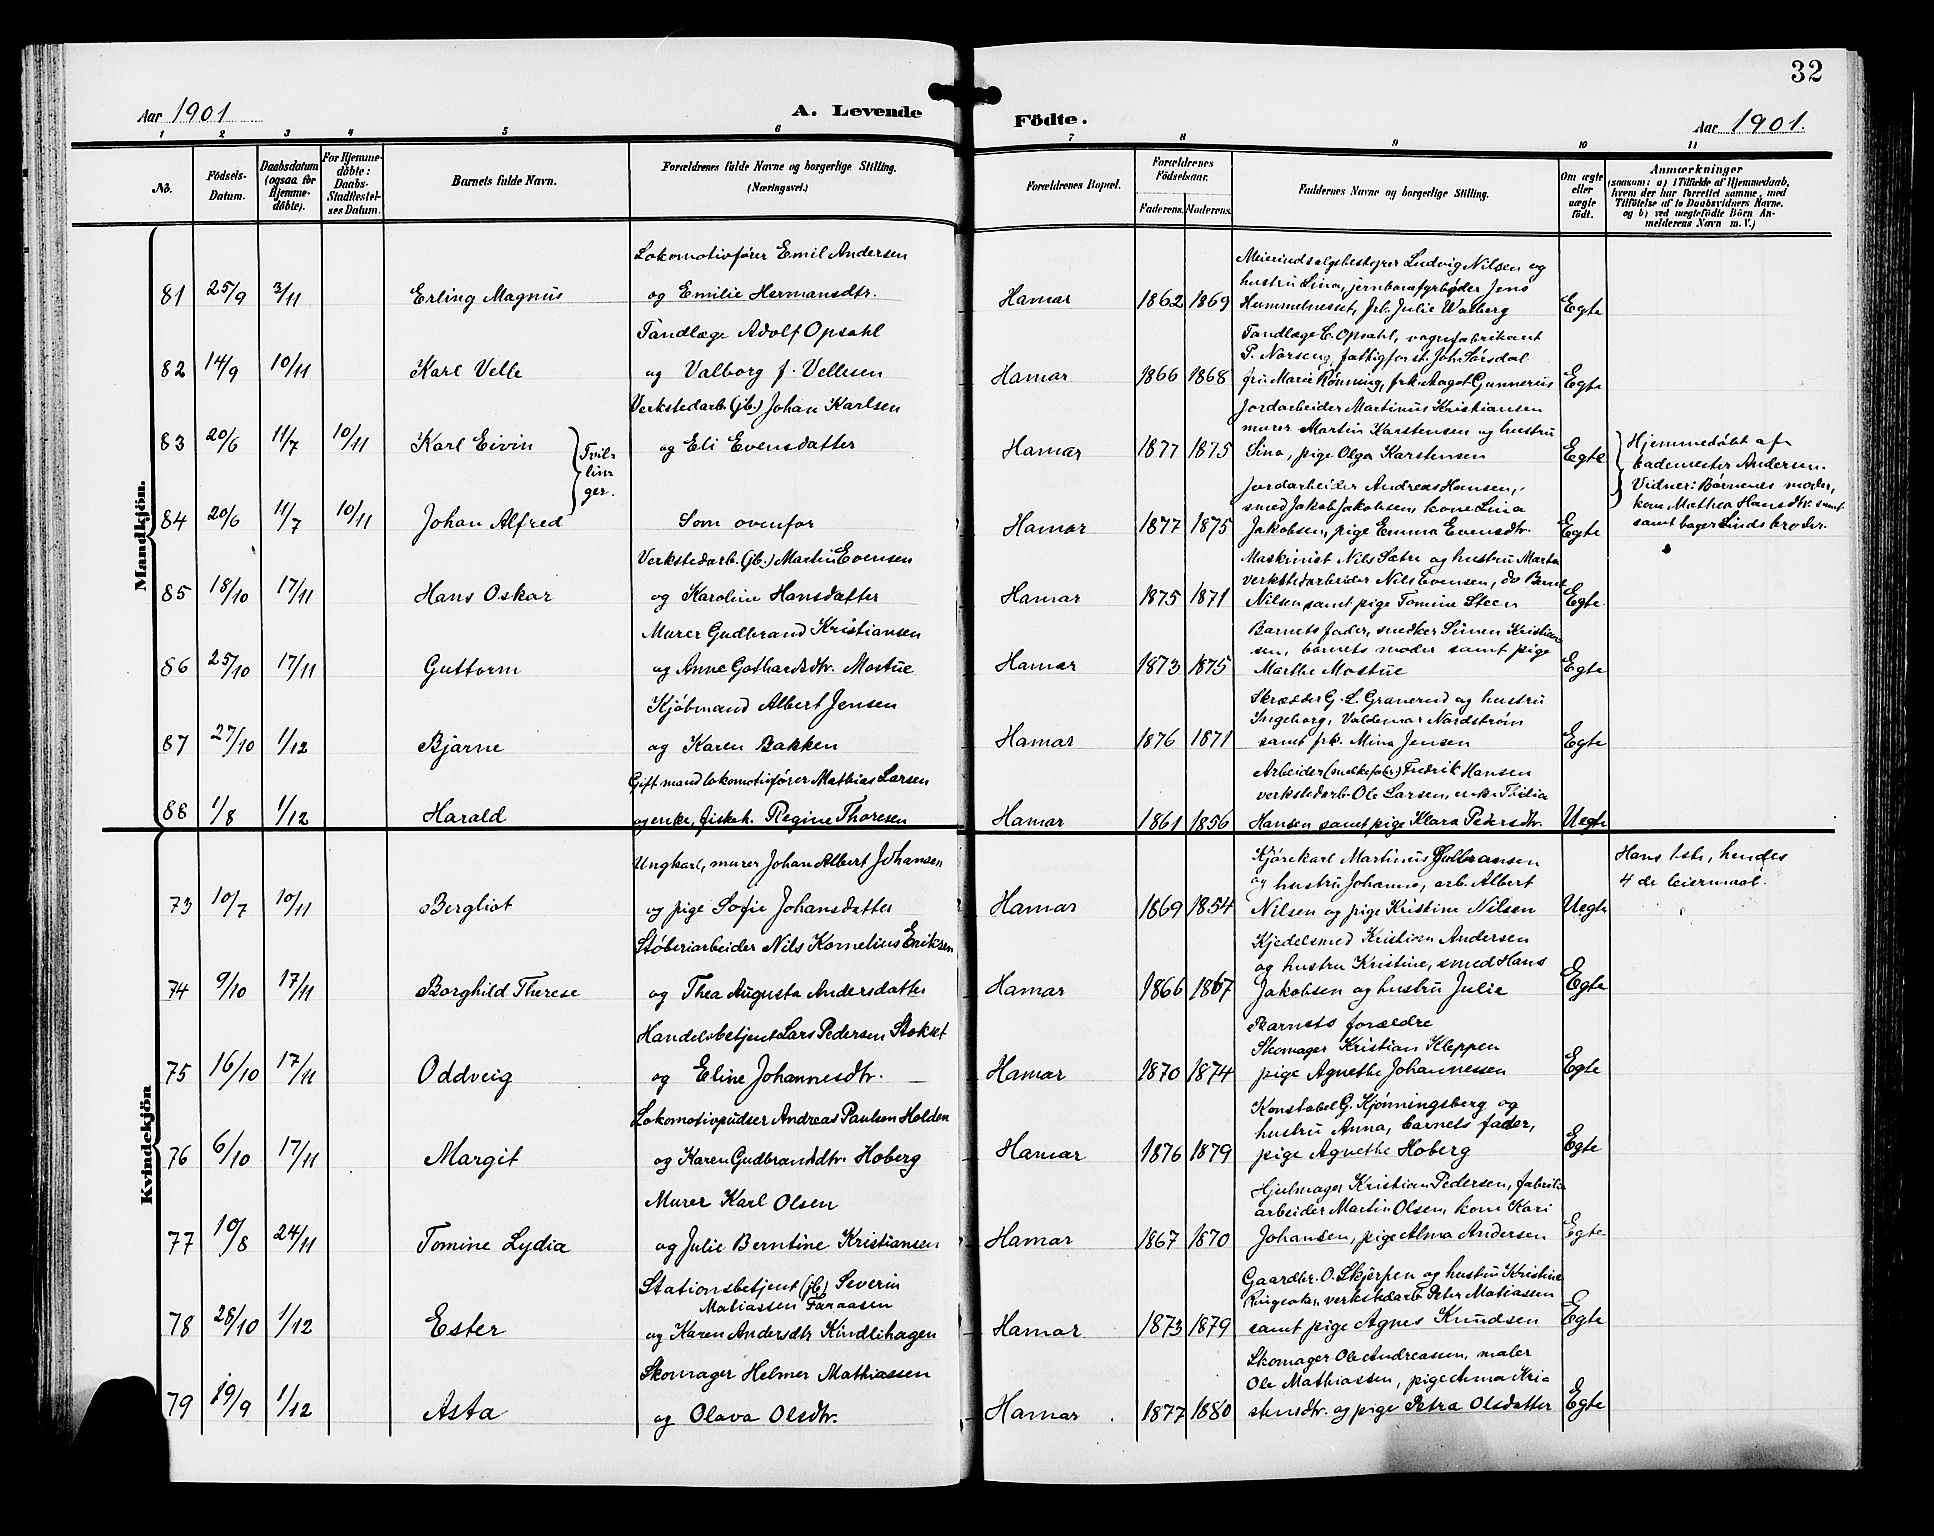 32
Aar 1901
A. Levende
Födte.
Aar 1901.
1 2 3 4 5 6 7 8 9 10 11
No.
Födsels-Datum.
Daabsdatum (ogsaa for Hjemme-döbte).
For Hjemme-döbte: Daabs-Stadfæstel-ses Datum.
Barnets fulde Navn.
Forældrenes fulde Navne og borgerlige Stilling. (Næringsvei.)
Forældrenes Bopæl.
Forældrenes Födselsaar.
Faderens. Moderens.
Faddernes Navne og borgerlige Stilling.
Om ægte eller uægte født.
Anmærkninger
(saasom: a) i Tilfælde af Hjemmedaab,
hvem der har forrettet samme, med
Tilföielse af to Daabsvidners Navne.
og b) ved uægtefödte Börn An-
melderens Navn m. V.)
Mandkjön.
81 25/9 3/11 Erling Magnus
Lokomotivfører Emil Andersen
og Emilie Hermansdtr.
Hamar 1862 1869
Meieriudsalgsbestyrer Ludvig Nilsen og
hustru Lina, jernbanefyrbøder Jens
Hummelnesset, frk. Julie Walberg
Egte
82 14/9 10/11 Karl Velle
Tandlæge Adolf Opsahl
og Valborg f. Vellesen
Hamar 1866 1868
Tandlæge C. Opsahl, vognfabrikant
P. Norseng, fattigforst. Joh. Sørsdal
fru Marie Rønning, frk. Aagot Gunnerius
Egte
83 20/6 11/7 10/11 Karl Eivin
Tvil-
lin-
ger.
Verkstedarb. (jb.) Johan Karlsen
og Eli Evensdatter
Hamar 1877 1875
Jordarbeider Martinus Kristiansen
murer Martin Karstensen og hustru
Sina, pige Olga Karstensen
Egte
Hjemmedøbt af
bademester Andersen.
Vidner: Børnenes moder,
kone Mathea Hansdtr. samt
samt bager Lindsbroder.
84 20/6 11/7 10/11 Johan Alfred
Som ovenfor
Hamar 1877 1875
Jordarbeider Andreas Hansen,
smed Jakob Jakobsen, kone Lina
Jakobsen, pige Emma Evensdtr.
Egte
85 18/10 17/11 Hans Oskar
Verkstedarb. (jb.) Martin Evensen
og Karoline Hansdatter
Hamar 1875 1871
Maskinist Nils Sætre og hustru Marten
verkstedarbeider Nils Evensen, do Bernt
Nilsen samt pige Tomine Steen
Egte
86 25/10 17/11 Guttorm
Murer Gudbrand Kristiansen
og Anne Gothardsdtr. Mostue
Hamar 1873 1875
Barnets fader, snedker Simen Kristian
sen, barnets moder samt pige
Marthe Mostue
Egte
87 27/10 1/12 Bjarne
Kjøbmand Albert Jensen
og Karen Bakken
Hamar 1876 1871
Skrædder G. L. Granerud og hustru
Ingeborg, Valdemar Nordstrøm
samt frk. Mina Jensen
Egte
88 1/8 1/12 Harald
Gift mand lokomotivfører Mathias Larsen
og enke, fiskeh. Regine Thoresen
Hamar 1861 1856
Arbeider (snekkefabr.) Fredrik Hansen
verkstedarb. Ole Larsen, enke Thilia
Hansen samt pige Klara Pedersdtr.
Uegte
Kvindekjön
73 10/7 10/11 Bergliot
Ungkarl, murer Johan Albert Johansen
og pige Sofie Johansdatter
Hamar 1869 1854
Kjørekarl Martinus Gulbransen
og hustru Johanne, arb. Albert
Nilsen og pige Kristine Nilsen
Uegte
Hans 1ste, hendes
4 de leiermaal.
74 9/10 17/11 Borghild Therese
Støberiarbeider Nils Kornelius Eriksen
og Thea Augusta Andersdatter
Hamar 1866 1867
Kjedelsmed Kristian Andersen
og hustru Kristine, smed Hans
Jakobsen og hustru Julie
Egte
75 16/10 17/11 Oddveig
Handelsbetjent Lars Pedersen Stokset
og Eline Johannesdtr.
Hamar 1870 1874
Barnets forældre
Skomager Kristian Kleppen
pige Agnethe Johannessen
Egte
76 6/10 17/11 Margit
Lokomotivpudser Andreas Paulsen Holden
og Karen Gudbrandsdtr. Hoberg
Hamar 1876 1879
Konstabel G. Kjønningsberg og
hustru Anna, barnets fader,
pige Agnethe Hoberg
Egte
77 10/8 24/11 Tomine Lydia
Murer Karl Olsen
og Julie Berntine Kristiansen
Hamar 1867 1870
Hjulmager Kristian Pedersen, fabrik
arbeider Martin Olsen, kone Kari
Johansen, pige Alma Andersen
Egte
78 28/10 1/12 Ester
Stationsbetjent (jb) Severin
Matiassen Faraasen
og Karen Andersdtr Kindlihagen
Hamar 1873 1879
Gaardbr. O. Skjerpen og hustru Kristine
Ringsaker, verkstedarb. Peter Matiassen
samt pige Agnes Knudsen
Egte
79 19/9 1/12 Asta
Skomager Helmer Mathiassen
og Olava Olsdtr.
Hamar 1877 1880
Skomager Ole Andreassen, maler
Ole Mathiassen, pige Anna Kri
stensdtr. og pige Petra Olsdatter
Egte